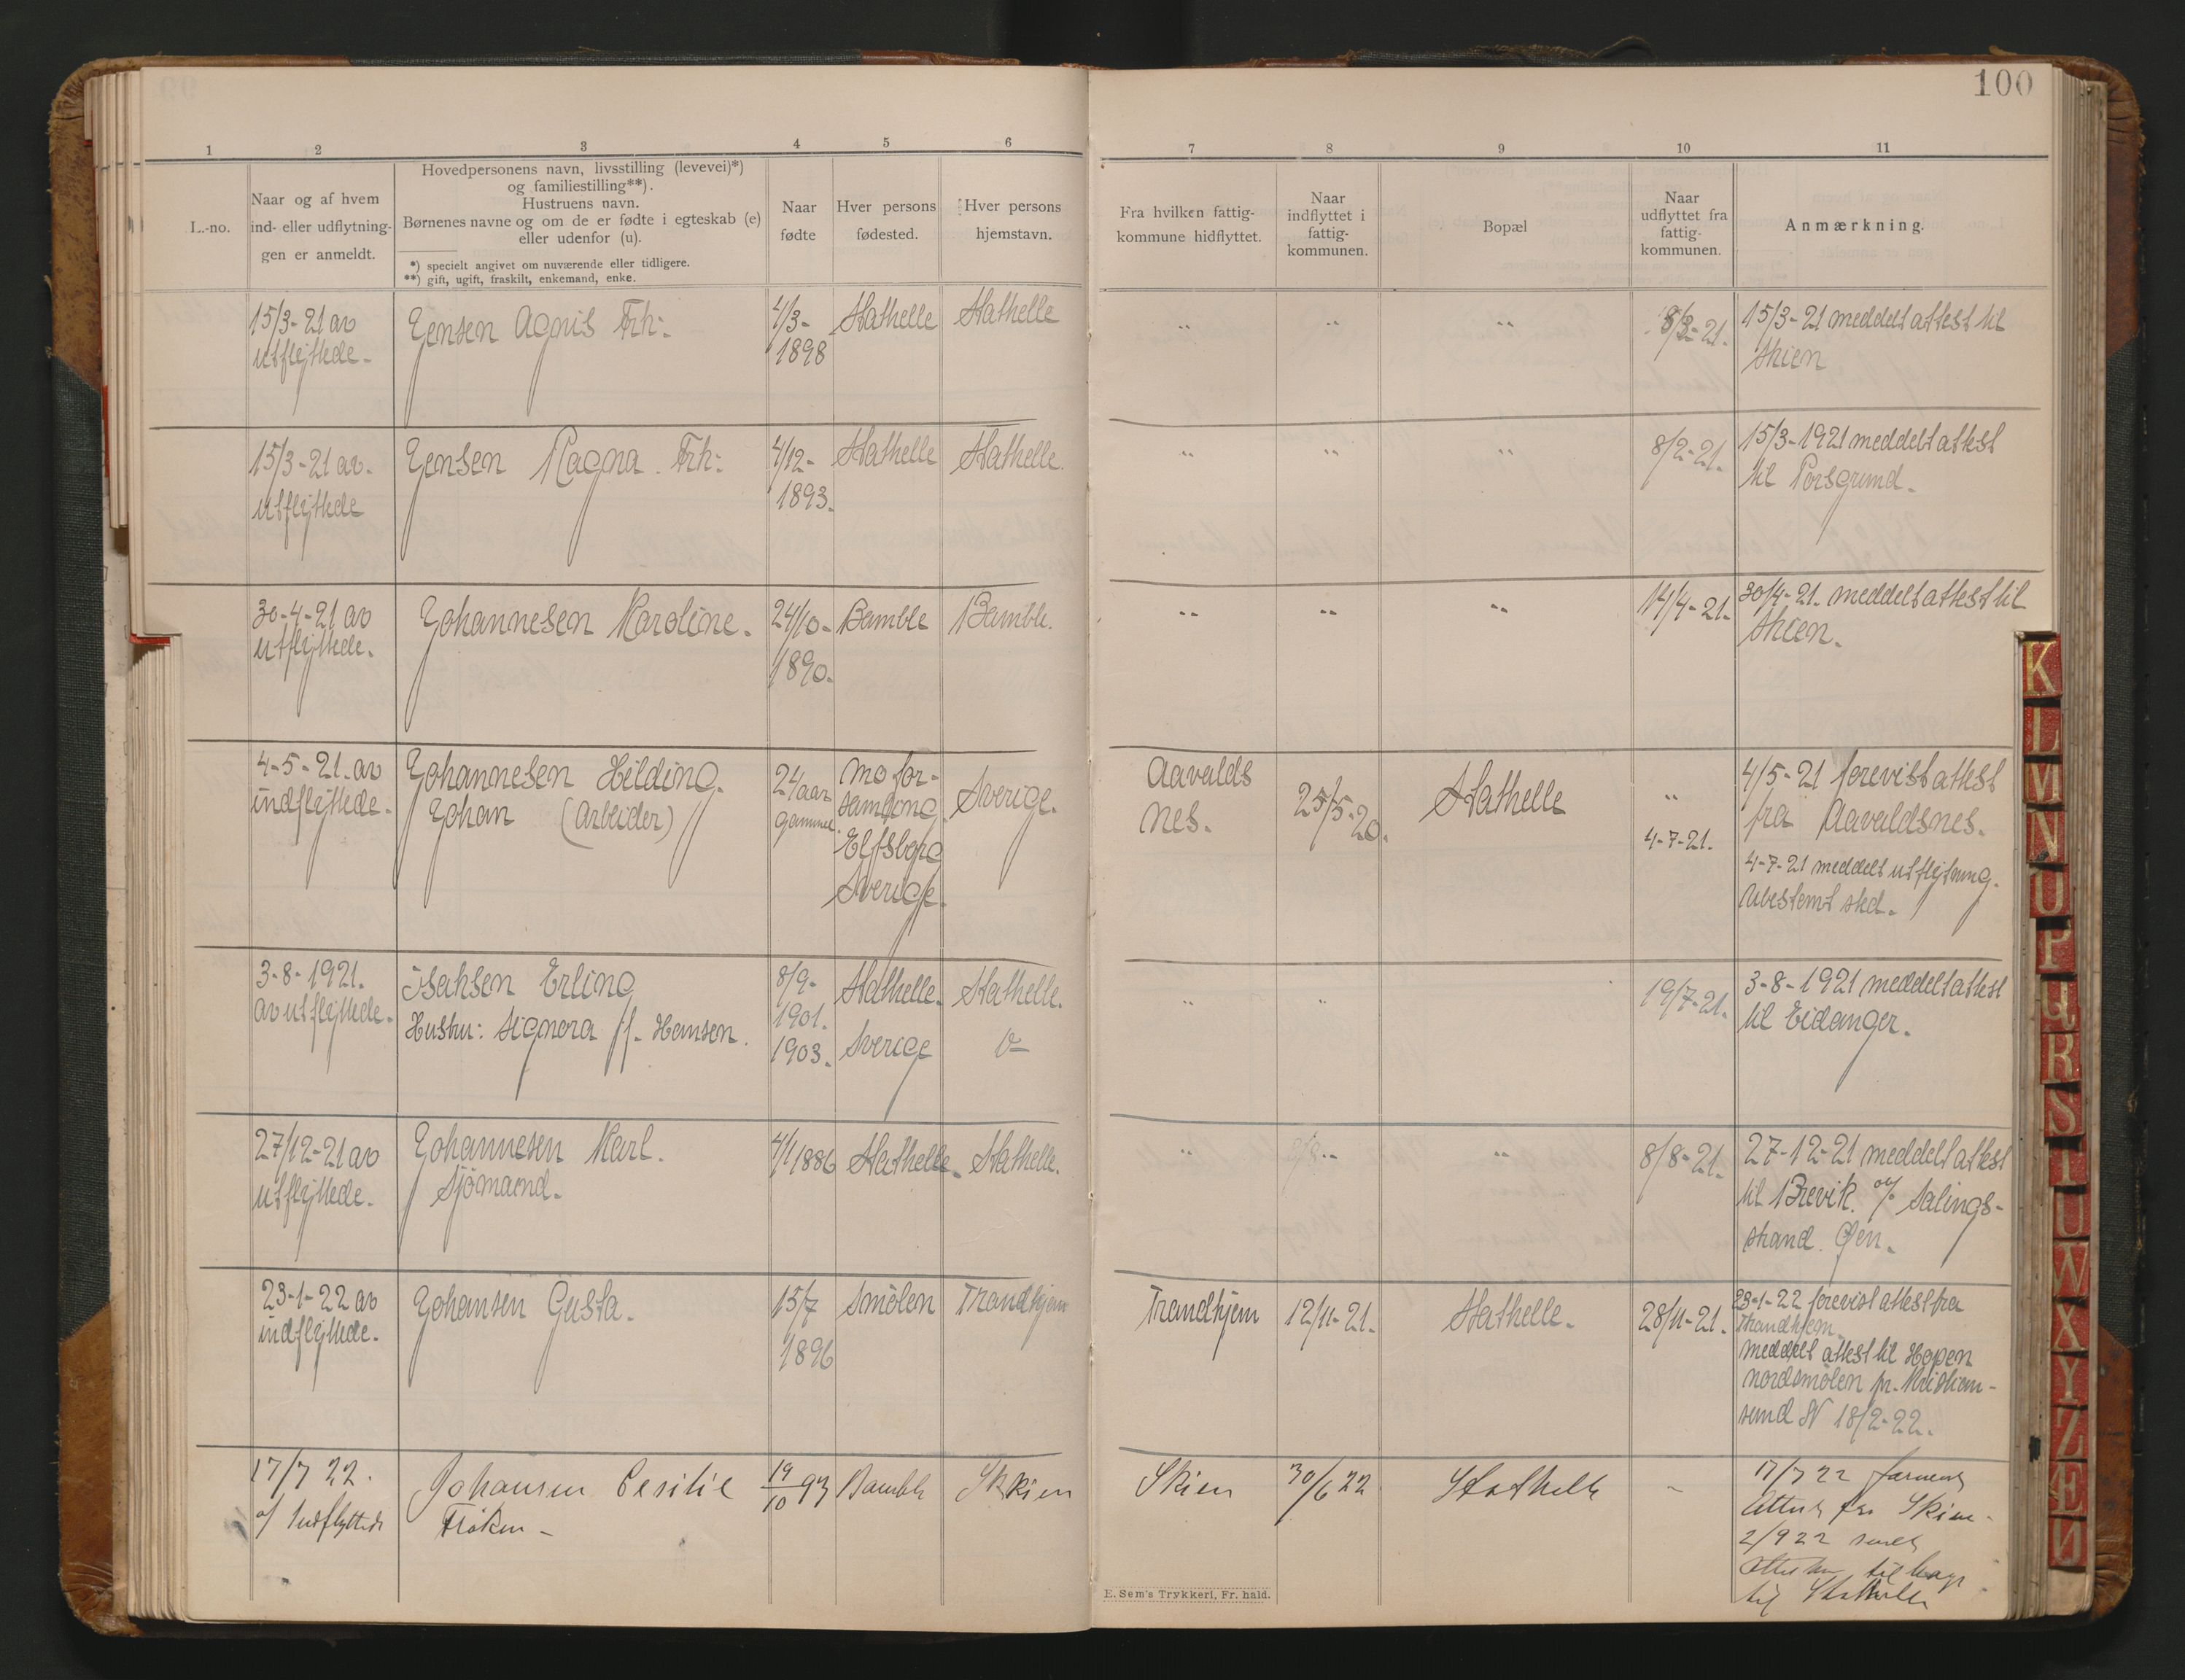 100
1 2 3 4 5 6 7 8 9 10 11
L.-no.
Naar og af hvem
ind- eller udflytning-
gen er anmeldt.
Hovedpersonens navn, livsstilling (levevei)*)
og familiestilling**).
Hustruens navn.
Børnenes navne og om de er fødte i egteskab (e)
eller udenfor (u).
*) specielt angivet om nuværende eller tidligere.
**) gift, ugift, fraskilt, enkemand, enke.
Naar
fødte
Hver persons
fødested.
Hver persons
hjemstavn.
Fra hvilken fattig-
kommune hidflyttet.
Naar
indflyttet i
fattig-
kommunen.
Bopæl
Naar
udflyttet fra
fattig-
kommunen.
Anmærkning.
15/3-21 av
utflyttede-
Jensen Agnis Frk:
4/3-
1898
Stathelle
Stathelle
"
"
"
8/3-21.
15/3-21 meddelt attest til
Skien
15/3-21 av.
utflyttede
Jensen Magna. Frk:
4/12-
1893.
Stathelle
Stathelle.
"
"
"
8/2-21.
15/3-1921 meddelt attest
til Porsgrund.
30-4-21 av
utflyttede.
Johannesen Karoline.
24/10-
1890.
Bamble
Bamble.
"
"
"
14/4-21.
30/4-21. meddelt attest til
Skien.
4-5-21. av
indflyttede-
Johannesen Hilding.
Johan (Arbeider)
24 aar
gammel.
Mo for-
samling
Elfsborg
Sverige.
Sverige.
Aavalds
nes.
25/5-20.
Stathelle
"
4-7-21.
4/5-21 forevist attest
fra Aavaldsnes.
4-7-21 meddelt utflytning.
Ubestemt sted.
3-8-1921.
av utflyttede-
Isaksen Erling
Hustru: Signora f. Hansen.
8/9-
1901.
1903.
Stathelle.
Sverige
Stathelle.
"
"
19/7-21.
3-8-1921 meddelt attest
til Eidanger.
27/12-21 av
utflyttede.
Johannesen Karl.
Sjømand.
4/1 1886
Stathelle.
Stathelle.
"
"
"
8/8-21.
27-12-21 meddelt attest
til Brevik. % Salings-
strand. Øen.
23-1-22 av
indflyttede.
Johansen Gusta.
15/7
1896
Smølen
Trondhjem
Trondhjem
12/11-21.
Stathelle.
28/11-21.
23-1-22 forevist attest fra
Trondhjem.
meddelt attest til Hopen
Nordsmølen pr. Kristian-
sund N 18/2-22.
17/7 22.
af Indflyttede
Johansen Cesilie
Frøken -
19/10 93
Bamble
Skien
Skien
30/6 22
Stathelle
-
17/7 22
Attest fra Skien.
2/9 22 sendt
til
til Stathelle
E. Sem's Trykkeri, Fr. hald.
K
L
M
N
O
P
Q
R
S
T
U
W
X
Y
Z
Æ
Ø